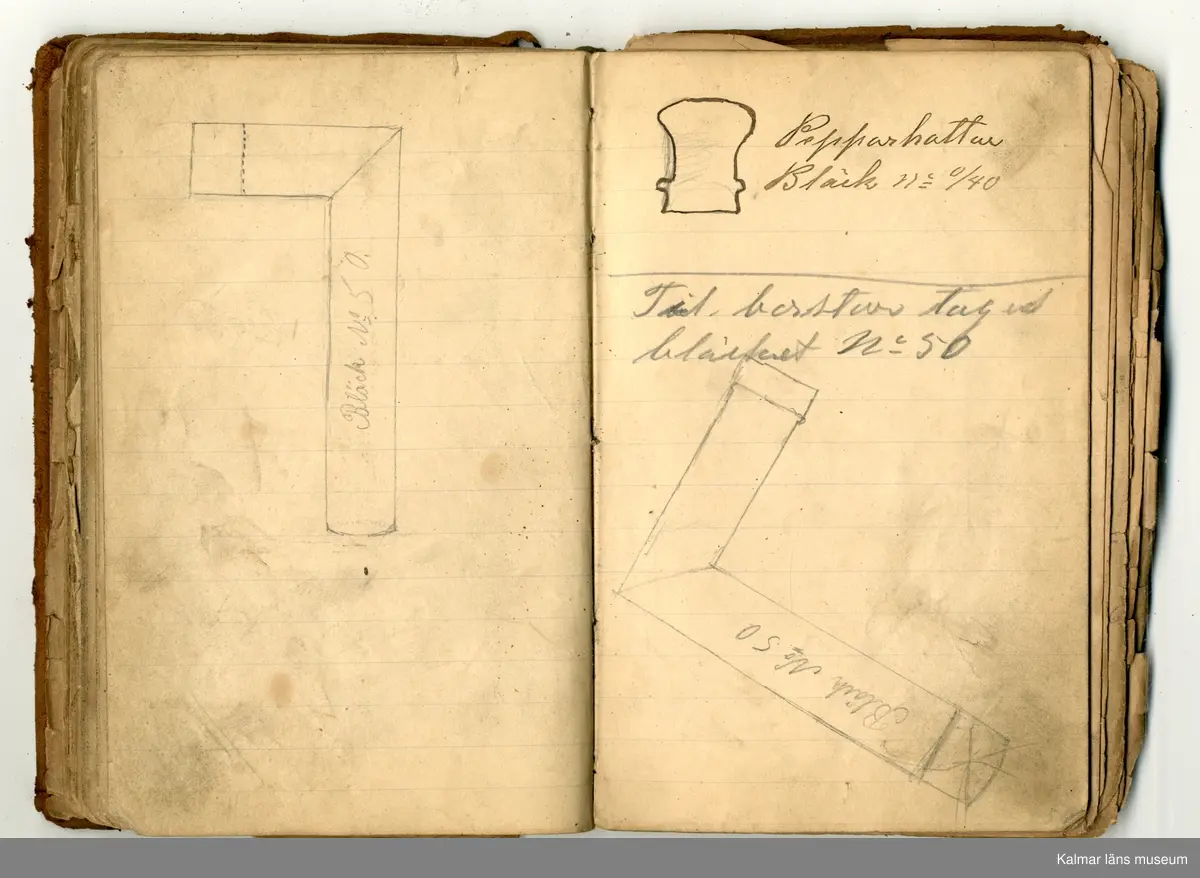 Bläck No 50.
Pepparhattar
Bläck No 0/40
Till borstar tages
bläcket No 50
Bläck No 50
Kalmar läns museum